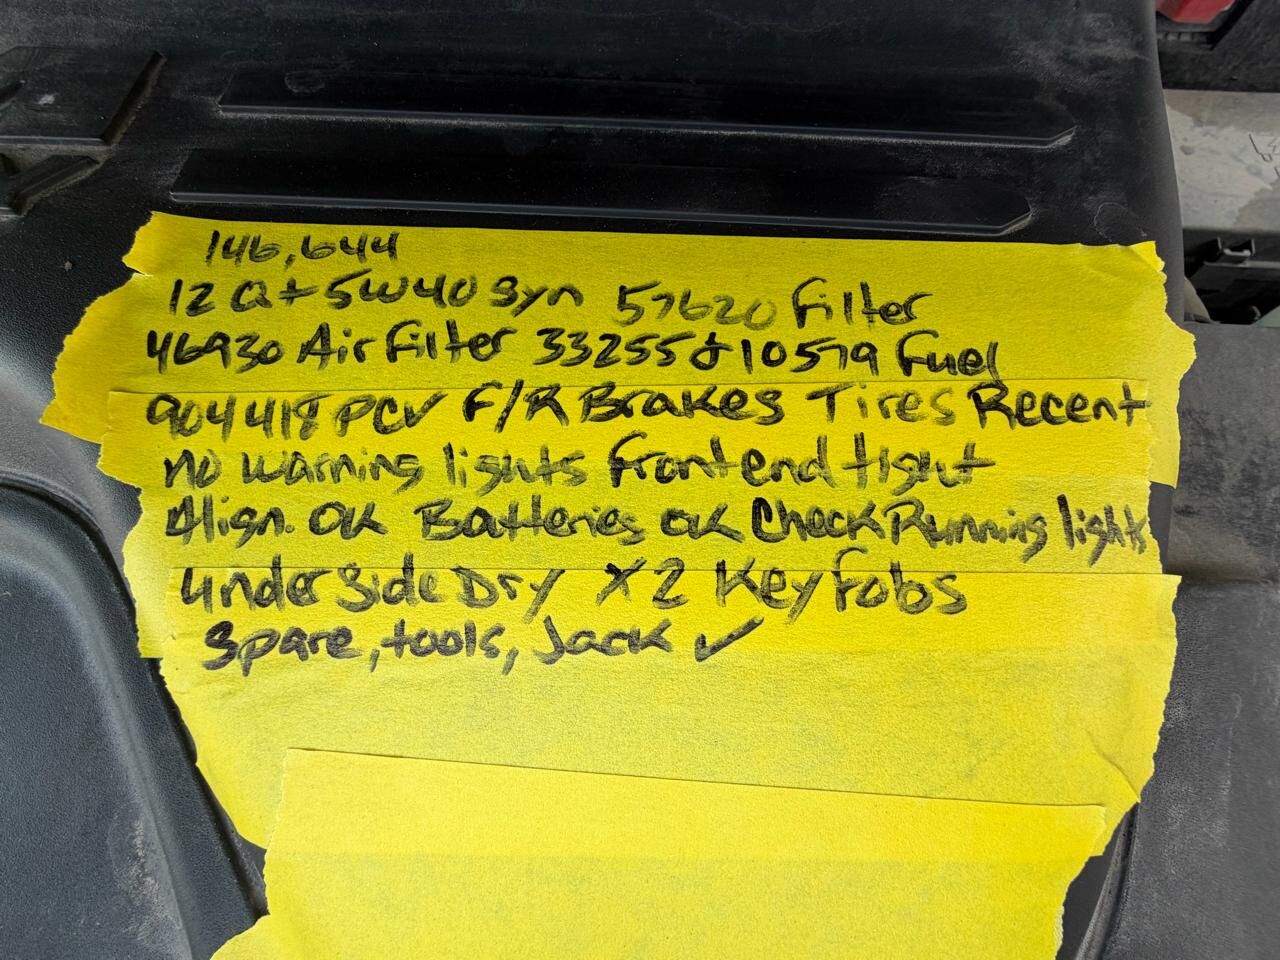 146,644
12 Qt 5W40 Syn 57620 filter
46930 Air filter 33255 & 10579 fuel
904418 PCV F/R Brakes Tires Recent
no warning lights frontend tight
Align. OK Batteries OK Check Running lights
underside Dry X2 Key fobs
Spare, tools, Jack ✓